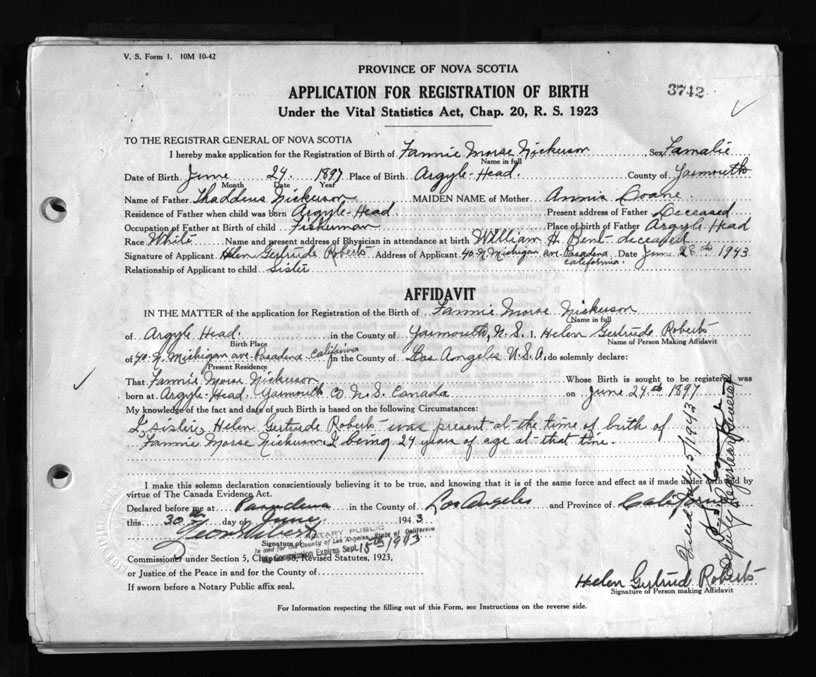 V. S. Form 1. 10M 10-42
PROVINCE OF NOVA SCOTIA
APPLICATION FOR REGISTRATION OF BIRTH
3742
Under the Vital Statistics Act, Chap. 20, R. S. 1923
TO THE REGISTRAR GENERAL OF NOVA SCOTIA
I hereby make application for the Registration of Birth of Fannie Morse Nickerson Sex Famalie
Name in full
Date of Birth June 24 1897 Place of Birth Argyle-Head. County of Yarmouth
Month Date Year
Name of Father Thaddeus Nickerson MAIDEN NAME of Mother Annis
Residence of Father when child was born Argyle-Head. Present address of Father Deceased
Occupation of Father at Birth of child Fisherman Place of birth of Father Argyle Head
Race White Name and present address of Physician in attendance at birth William H. Bent-deceased
Signature of Applicant Helen Gertrude Roberts Address of Applicant 40 N. Michigan ave. Pasadena California. Date June 28th 1943
Relationship of Applicant to child Sister
AFFIDAVIT
IN THE MATTER of the application for Registration of the Birth of Fannie Morse Nickerson
(Name in full)
of Argyle Head. in the County of Yarmouth, N.S. I, Helen Gertrude Roberts
Birth Place Name of Person Making Affidavit
of 40 N. Michigan ave. Pasadena California in the County of Los Angeles U.S.A, do solemnly declare:
Present Residence
That Fannie Morse Nickerson Whose Birth is sought to be registered was
born at Argyle-Head. Yarmouth Co N.S. Canada on June 24th 1897
My knowledge of the fact and date of such Birth is based on the following Circumstances:
I, sister, Helen Gertrude Roberts-was present-at-the time of birth of
Fannie Morse Nickerson. I being 24 years of age at-that time.
I make this solemn declaration conscientiously believing it to be true, and knowing that it is of the same force and effect as if made under oath and by
virtue of The Canada Evidence Act.
Declared before me at Pasadena in the County of Los Angeles and Province of California
this 30th day of June 1943
NOTARY PUBLIC
Signature of
In and for the County of Los Angeles, State of California
My Commission Expires Sept. 15th 1943
Commissioner under Section 5, Chapter 38, Revised Statutes, 1923,
or Justice of the Peace in and for the County of
If sworn before a Notary Public affix seal.
Helen Gertrud Roberts
Signature of Person making Affidavit
For Information respecting the filling out of this Form, see Instructions on the reverse side.
July 5/1943
Deputy Registrar General